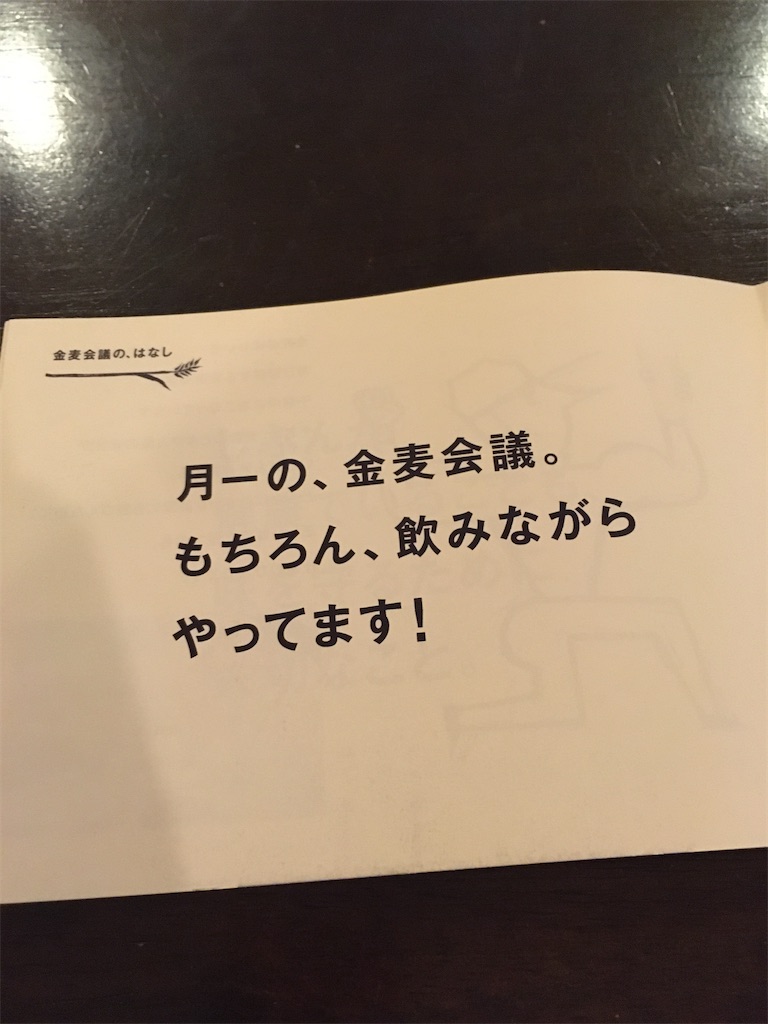 金麦会議の、はなし
月一の、金麦会議。
もちろん、飲みながら
やってます!